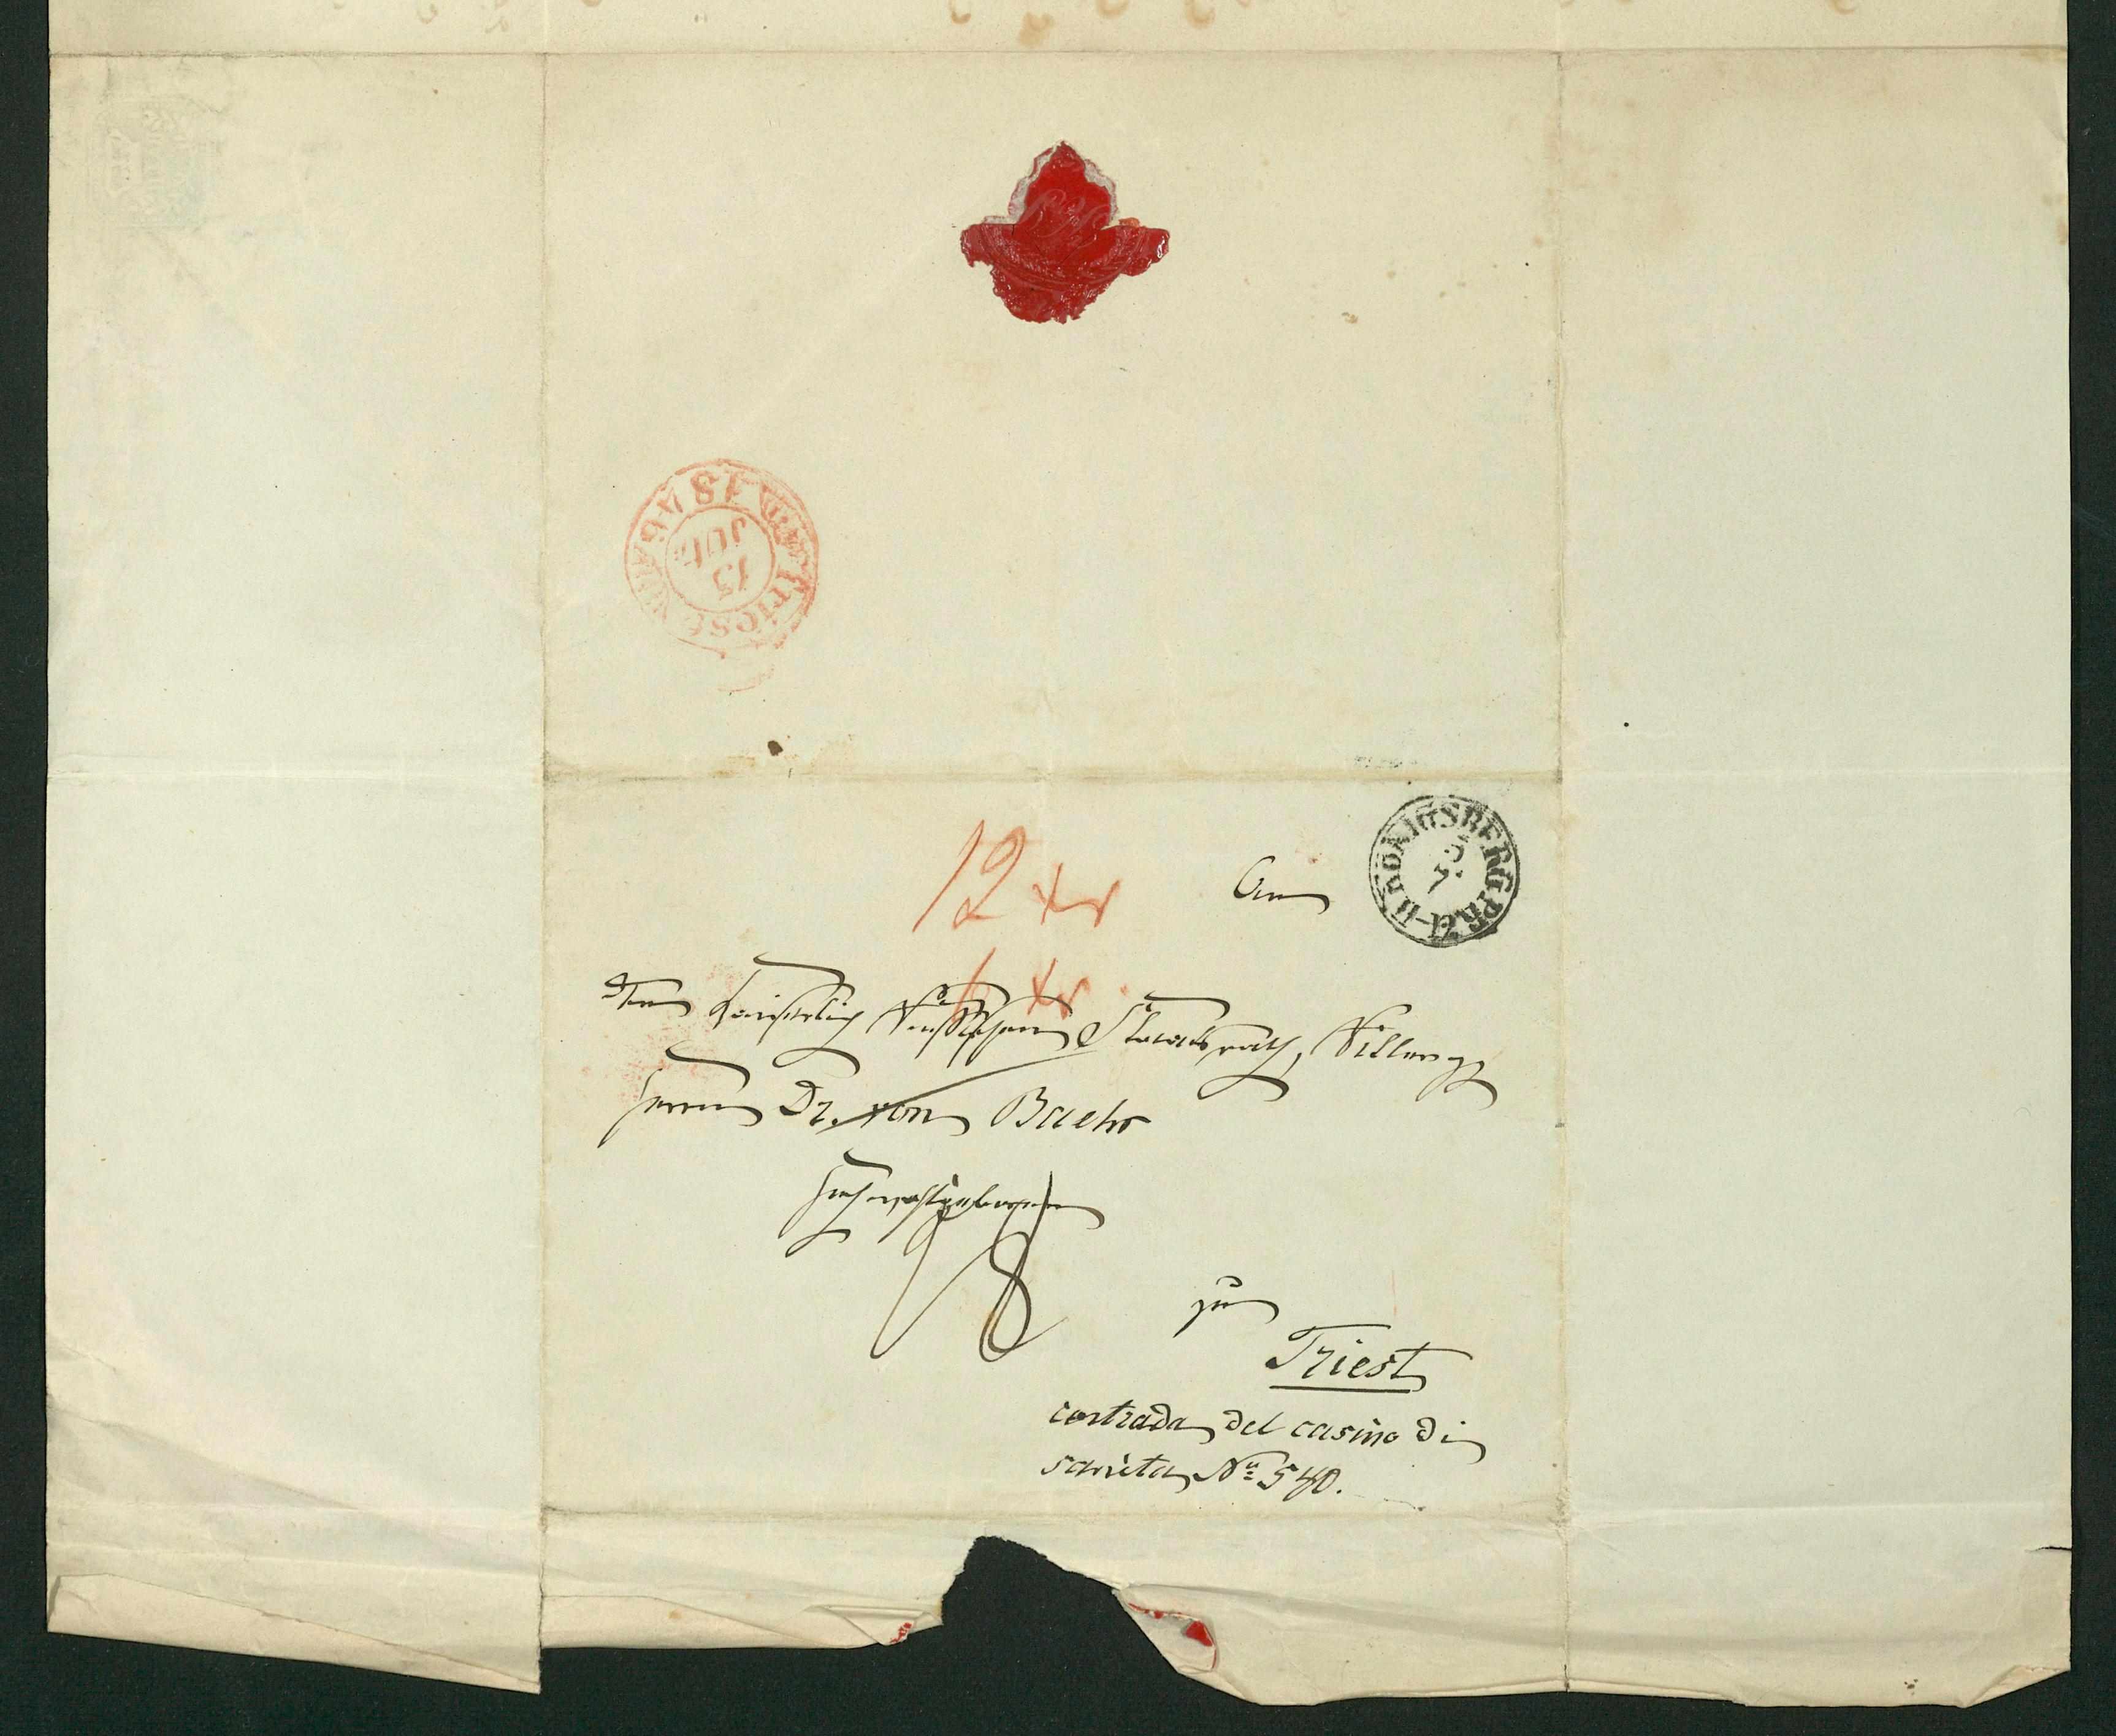 15
JUL
1846
Triest
KÖNIGSBERG.PR.
5
7.
12 xr
An
xr
den Kaiserlich Russischen Staatsrath, Ritter pp
Herrn Dr. von Baehr
Hochwohlgeboren
zu
Triest
contrada del casino di
sanita No 540.